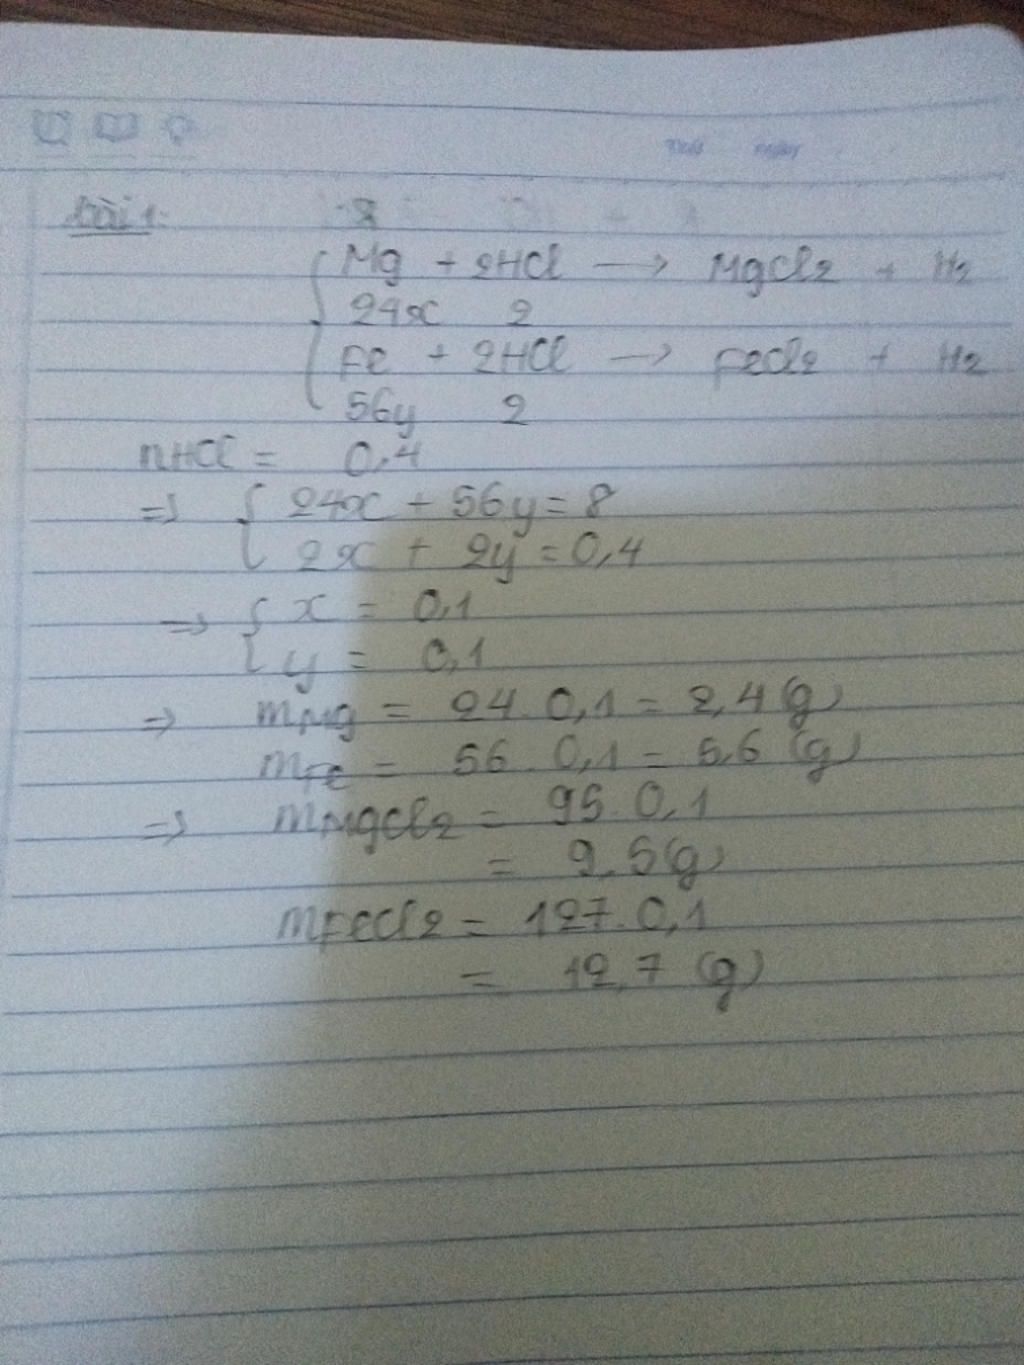 Thứ Ngày
bài 1:
Mg + 2HCl → MgCl2 + H2
24x 2
Fe + 2HCl → FeCl2 + H2
56y 2
nHCl = 0,4
=> { 24x + 56y = 8
2x + 2y = 0,4
=> { x = 0,1
y = 0,1
=> mMg = 24.0,1 = 2,4 (g)
mFe = 56.0,1 = 5,6 (g)
=> mMgCl2 = 95.0,1
= 9,5(g)
mFeCl2 = 127.0,1
= 12,7 (g)